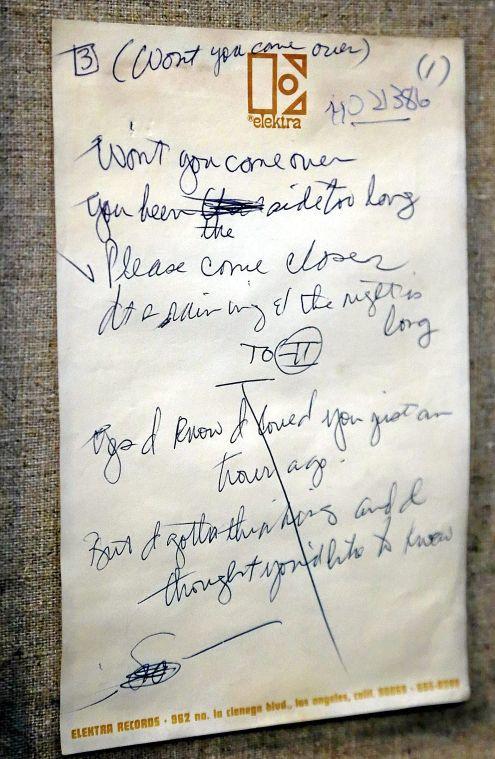 3 (Wont you come over) (1)
elektra
HO 21386
Wont you come over
You been side too long
the
Please come closer
its raining & the night is
long
TO II
Yes I know I loved you just an
hour ago.
But I gotta thinking and I
thought you'd like to know
ELEKTRA RECORDS · 962 no. la cienega blvd., los angeles, calif. 90069 ·